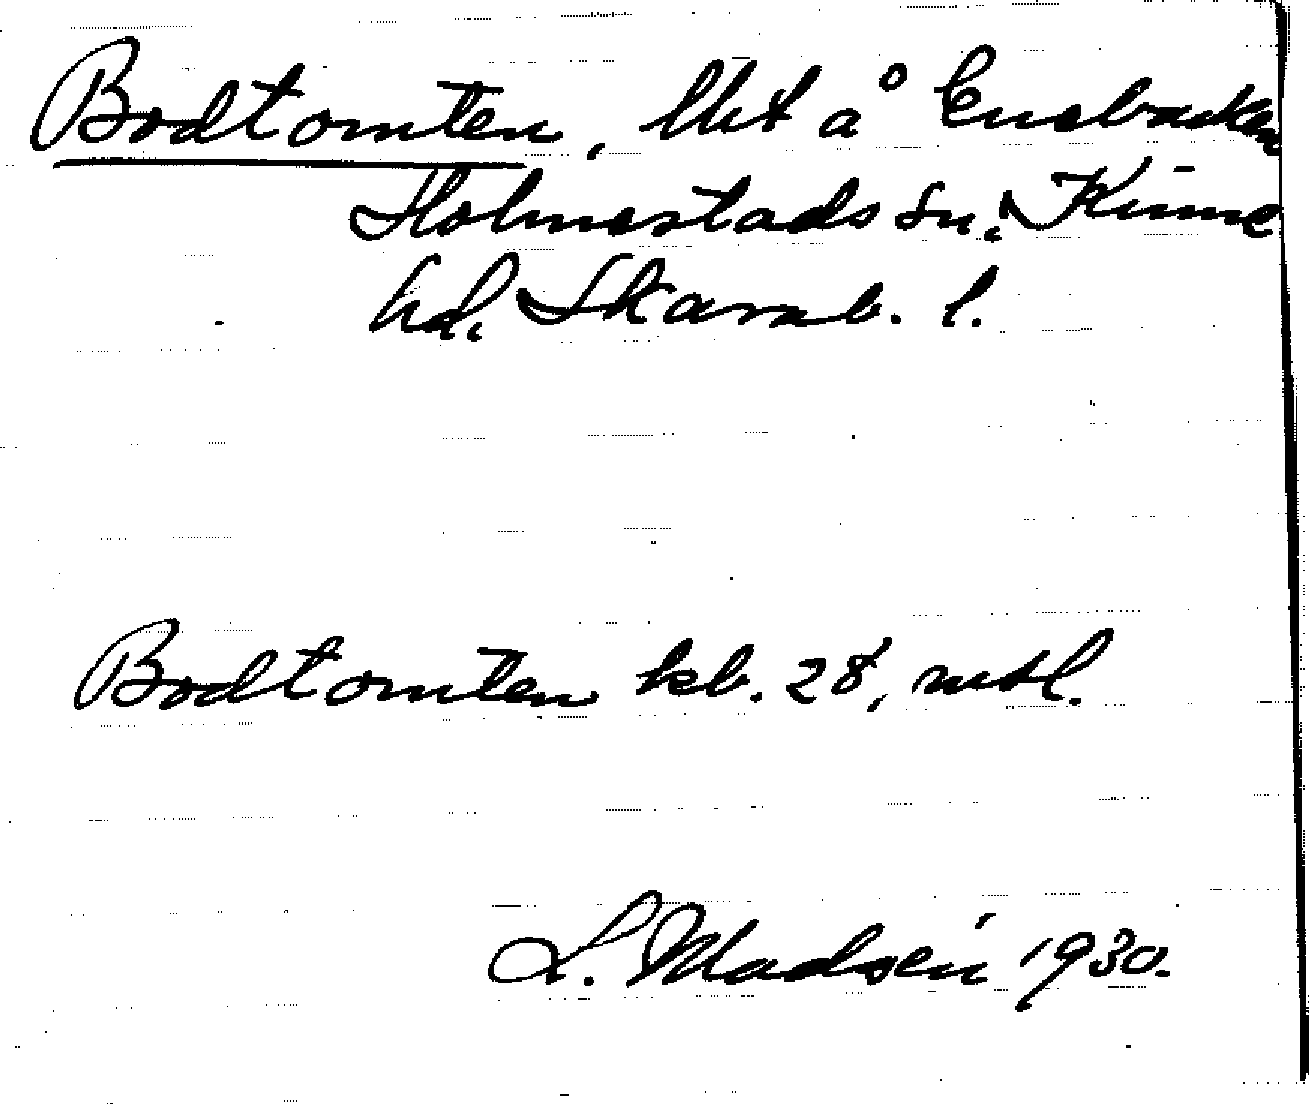 Bodtomten, lht å Enebacken
Holmestads sn. Kinne
hd. Skarab. l.
Bodtomten kb. 28, mtl.
L. Madsén 1930.